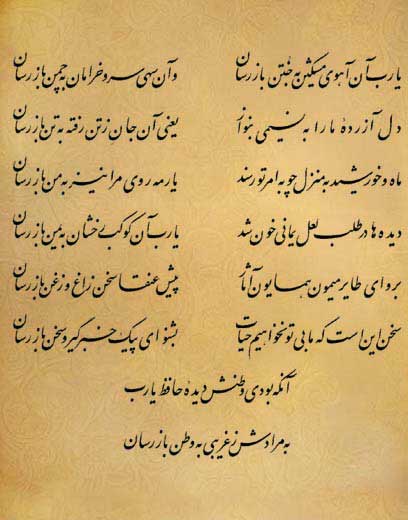 یارب آن آهوی مشکین به ختن بازرسان وآن سهی سرو خرامان به چمن بازرسان
دل آزردهٔ ما را به نسیمی بنواز یعنی آن جان ز تن رفته به تن بازرسان
ماه و خورشید به منزل چو به امر تو رسند یار مه روی مرا نیز به من بازرسان
دیده‌ها در طلب لعل یمانی خون شد یارب آن کوکب رخشان به یمن بازرسان
برو ای طایر میمون همایون آثار پیش عنقا سخن زاغ و زغن بازرسان
سخن این است که ما بی تو نخواهیم حیات بشنو ای پیک خبرگیر و سخن بازرسان
آنکه بودی وطنش دیدهٔ حافظ یارب
به مرادش ز غریبی به وطن بازرسان